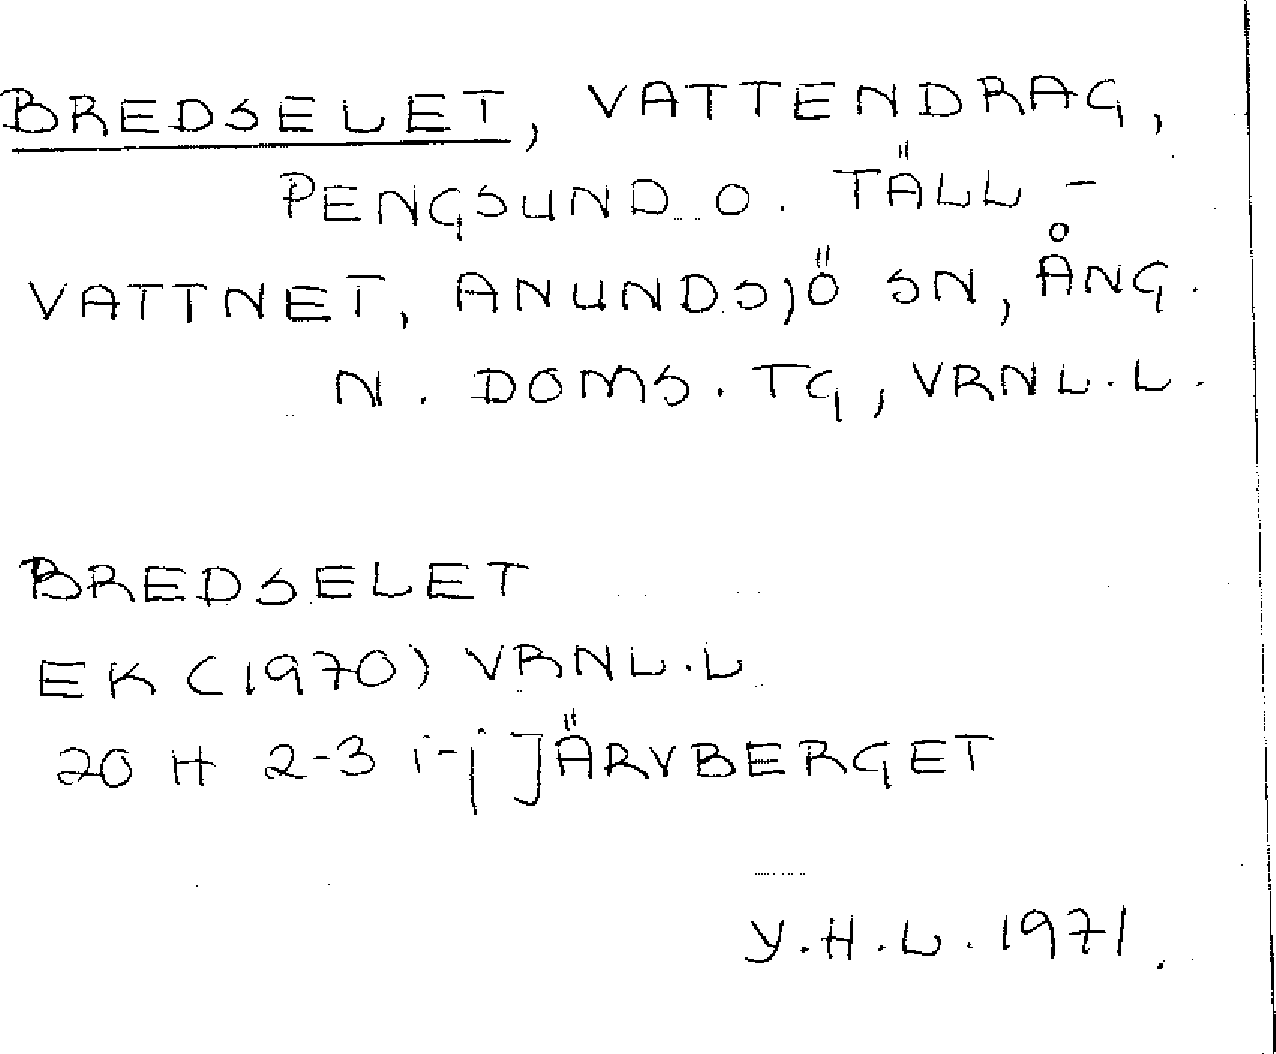 BREDSELET, VATTENDRAG,
PENGSUND O. TÄLL-
VATTNET, ANUNDSJÖ SN, ÅNG.
N. DOMS. TG, VRNL.L.
BREDSELET
EK (1970) VRNL.L
20 H 2-3 i-j JÄRVBERGET
Y.H.L. 1971.